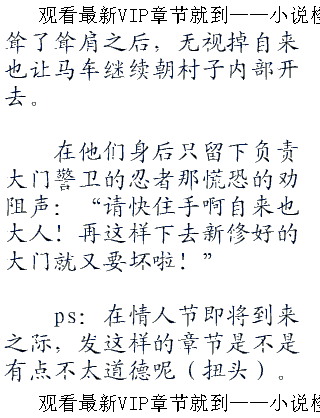 观看最新VIP章节就到——小说
耸了耸肩之后，无视掉自来
也让马车继续朝村子内部开
去。
在他们身后只留下负责
大门警卫的忍者那慌恐的劝
阻声：“请快住手啊自来也
大人！再这样下去新修好的
大门就又要坏啦！”
ps：在情人节即将到来
之际，发这样的章节是不是
有点不太道德呢（扭头）。
观看最新VIP章节就到——小说